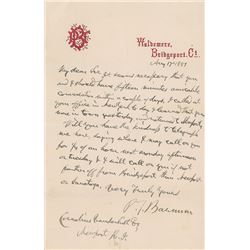 Waldemere,
Bridgeport, Ct.
Aug 12 1881
My dear Sir It seems necessary that you
& I should have fifteen minutes amicable
conversation within a couple of days. I called at
your office in New York to day & learned that you
were in Newport
Will you have the kindness to telegraph
me here saying where I may call on
you for ¼ of an hour next Monday afternoon
or Tuesday, & I will call on you if not
further off from Bridgeport than Newport
or Saratoga. Very truly yours
P. T. Barnum
Cornelius Vanderbilt Esq
Newport R. I.